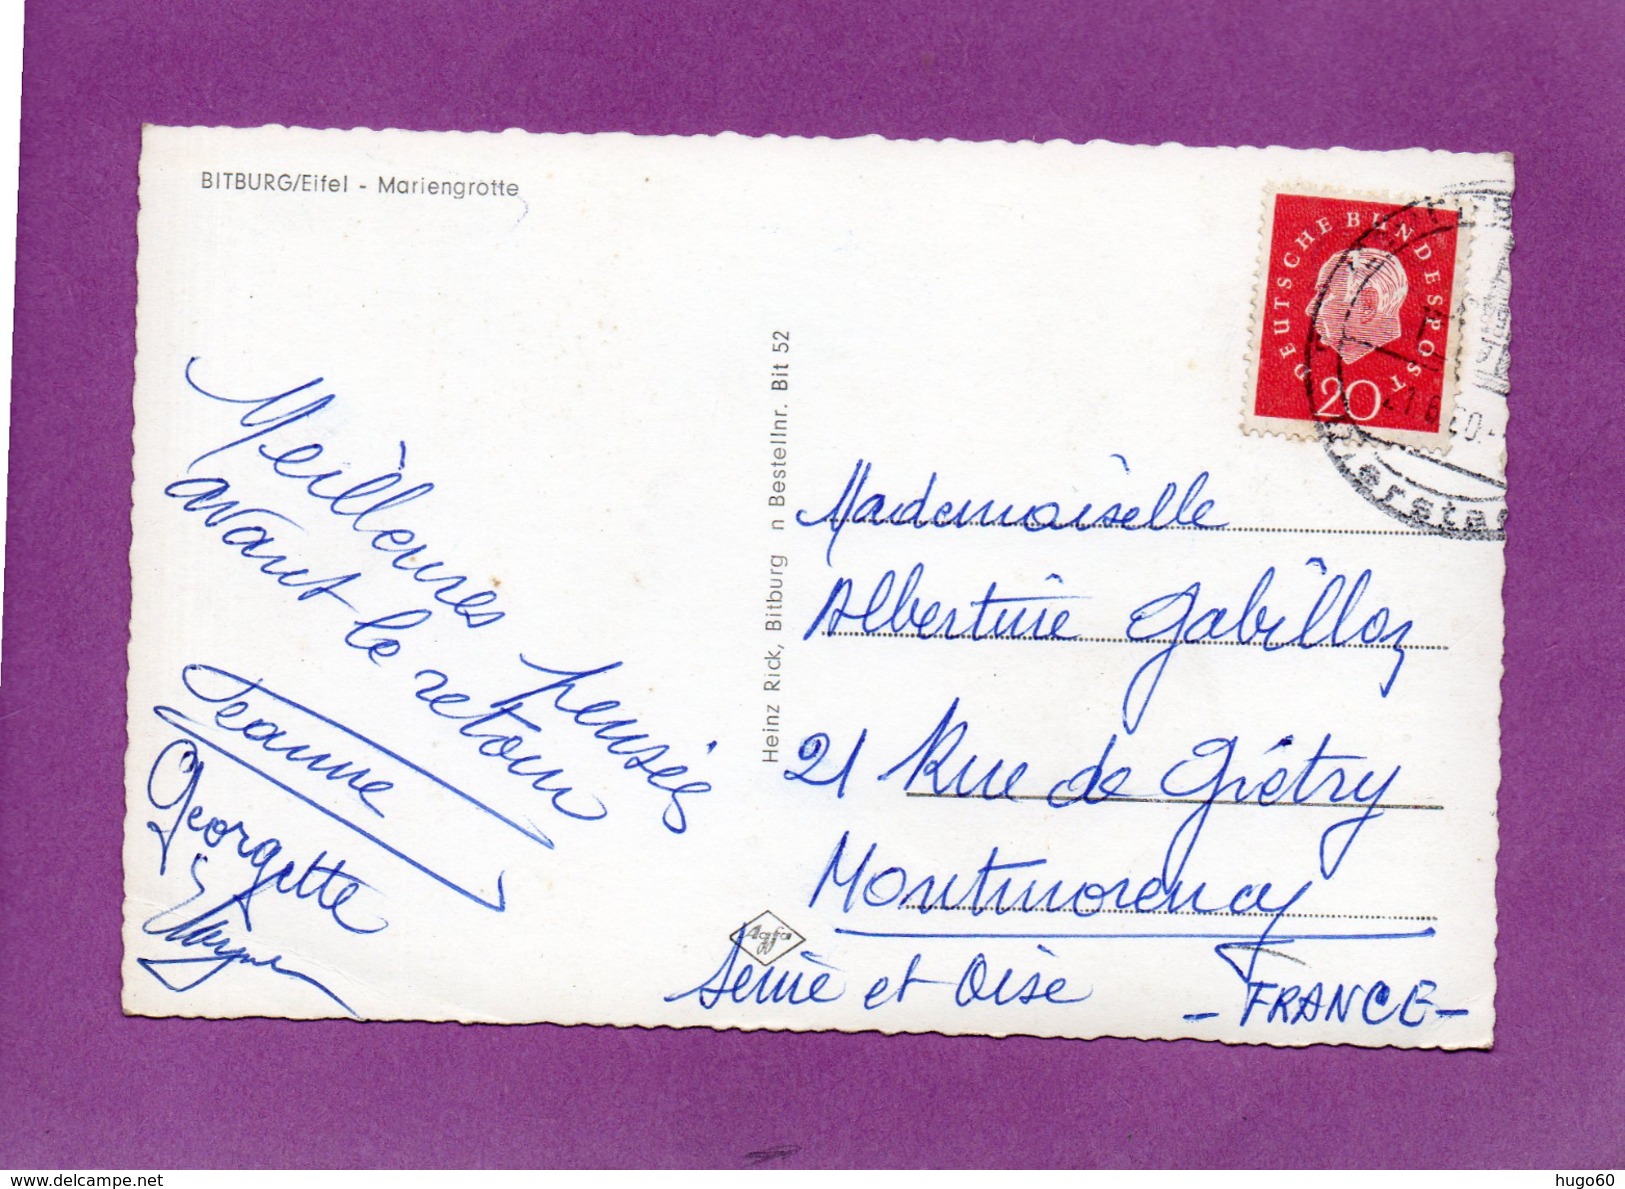 BITBURG/Eifel - Mariengrotte
DEUTSCHE BUNDESPOST
20
Meilleures pensées
avant le retour
Jeanne
Georgette
Heinz Rick, Bitburg n Bestellnr. Bit 52
Agfa
Mademoiselle
Albertine Gabilloz
21 Rue de Grétry
Montmorency
Seine et Oise
- FRANCE -
delcampe.net
hugo60